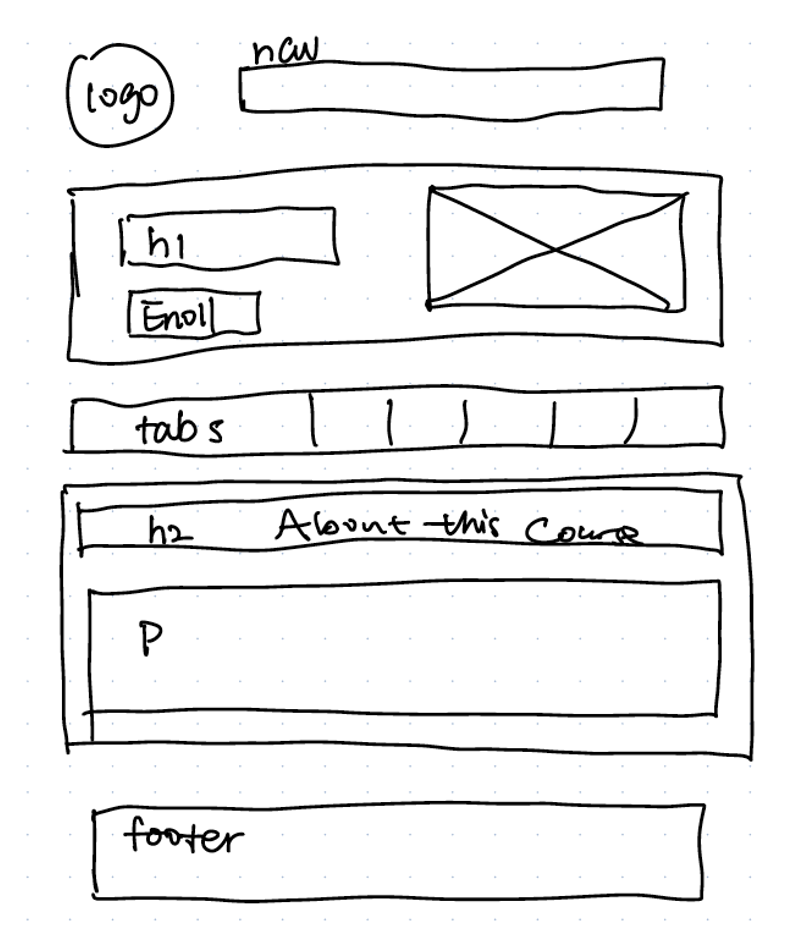 logo
nav
h1
Enoll
tabs
h2 About this Course
P
footer